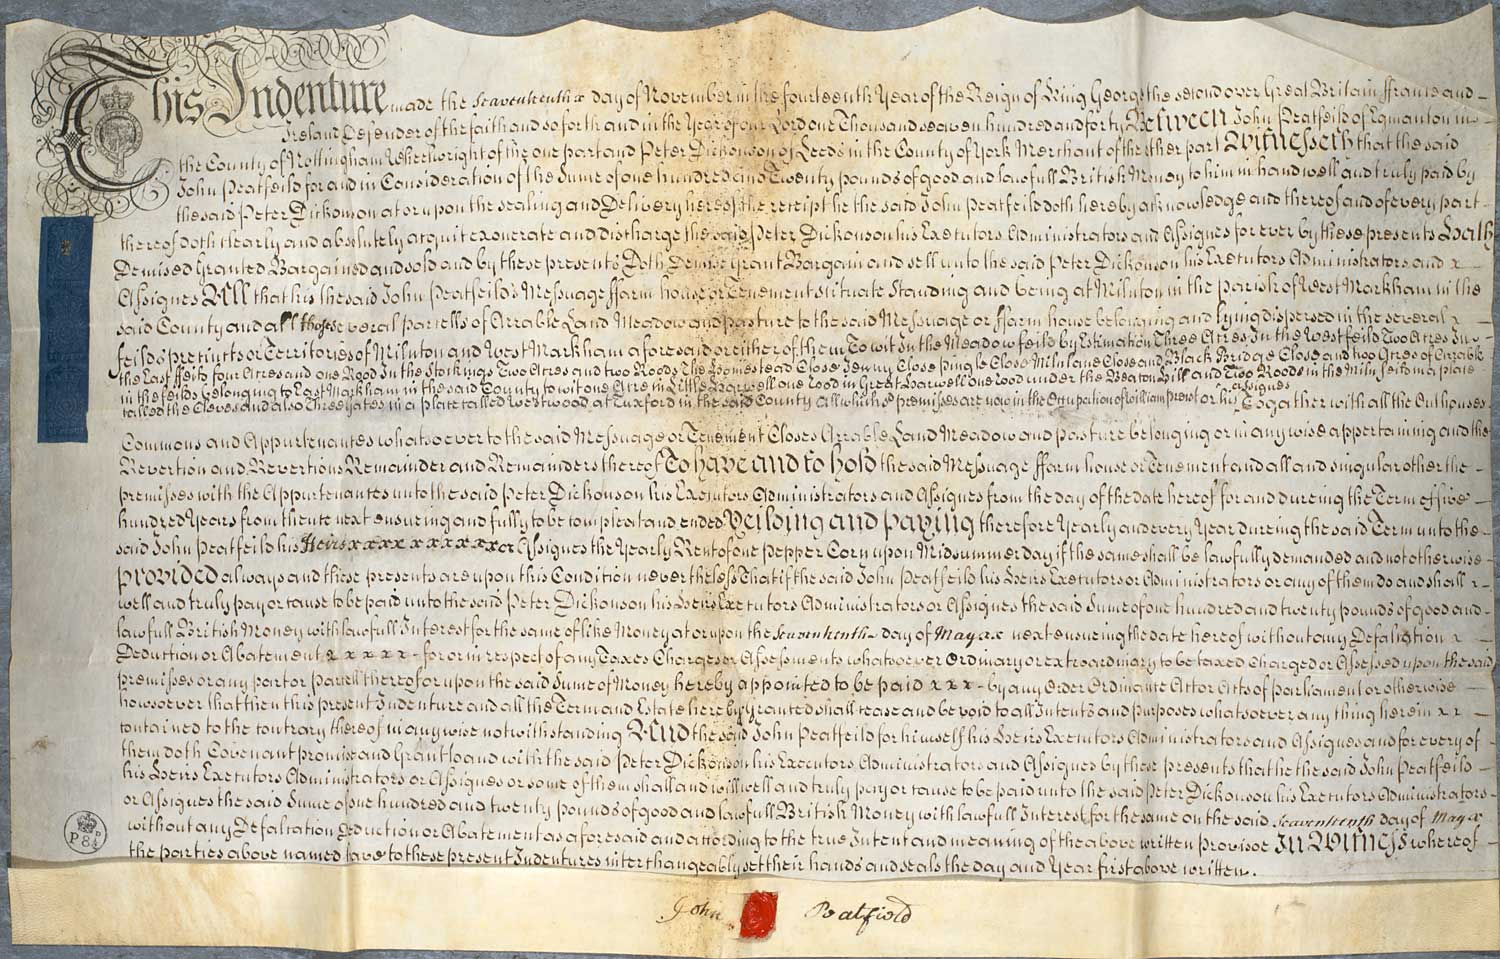 This Indenture made the Seaventeenth x day of November in the fourteenth Year of the Reign of King George the second over Great Britain ffrance and
Ireland Defender of the faith and so forth and in the Year of our Lord one Thousand seaven hundred and forty Between John Peatfeild of Egmanton in
the County of Nottingham Wheelwright of the one part and Peter Dickonson of Leeds in the County of York Merchant of the other part Witnesseth that the said
John Peatfeild for and in Consideration of the Sume of one hundred and Twenty pounds of good and lawfull British Money to him in hand well and truly paid by
the said Peter Dickonson at or upon the sealing and Delivery hereof the receipt he the said John Peatfeild doth hereby acknowledge and thereof and of every part
thereof doth clearly and absolutely acquit exonerate and discharge the said Peter Dickonson his Executors Administrators and Assignes for ever by these presents Hath
Demised Granted Bargained and sold and by these presents Doth Demise Grant Bargain and sell unto the said Peter Dickonson his Executors Administrators and x
Assignes All that his the said John Peatfeild's Messuage ffarm house or Tenement situate Standing and being at Milnton in the parish of West Markham in the
said County and all those several parcells of Arrable Land Meadow and pasture to the said Messuage or ffarm house belonging and lying dispersed in the several x
feilds precincts or Territories of Milnton and West Markham aforesaid or either of them To wit In the Meadow feild by Estimation Three Acres In the Westfeild Two Acres In
the East ffeild four Acres and one Rood In the Stockings Two Acres and two Roods The Homestead Close Jenny Close Pingle Close Milnlane Close and Black Bridge Close and two Acres of Arrable
in the feilds belonging to East Markham in the said County to wit one Acre in Little Harwell one rood in Great Harwell one rood under the Beacon Hill and Two Roods in the Milnfeild in a place
called the Cloves and also Three Gates in a place called Westwood at Tuxford in the said County All which premisses are now in the Occupation of William or his assignes Togather with all the Outhouses
Commons and Appurtenances whatsoever to the said Messuage or Tenement Closes Arrable Land Meadow and pasture belonging or in any wise appertaining and the
Revertion and Revertions Remainder and Remainders thereof To have and to hold the said Messuage ffarm house or Tenement and all and singular other the
premisses with the Appurtenances unto the said Peter Dickonson his Executors Administrators and Assignes from the day of the date hereof for and dureing the Term of five
hundred Years from thence next ensueing and fully to be compleat and ended Yeilding and paying therefore Yearly and every Year dureing the said Term unto the
said John Peatfeild his Heirs xxxx xxxxxxx or Assignes the Yearly Rent of one Pepper Corn upon Midsummer day if the same shall be lawfully demanded and not otherwise
Provided always and these presents are upon this Condition nevertheless That if the said John Peatfeild his Heirs Executors or Administrators or any of them do and shall x
well and truly pay or cause to be paid unto the said Peter Dickonson his Heirs Executors Administrators or Assignes the said Sume of one hundred and twenty pounds of good and
lawfull British Money with lawfull Interest for the same of like Money at or upon the Seaventeenth day of May xx next ensueing the date hereof without any Defalcation x
Deduction or Abatement x x x x x - for or in respect of any Taxes Charges or Assessments whatsoever Ordinary or extraordinary to be taxed Charged or Assessed upon the said
premisses or any part or parcell thereof or upon the said Sume of Money hereby appointed to be paid xxx - by any Order Ordinance Act or Acts of parliament or otherwise
howsoever that then this present Indenture and all the Term and Estate hereby granted shall cease and be void to all Intents and purposes whatsoever any thing herein x x
contained to the contrary thereof in any wise notwithstanding And the said John Peatfeild for himself his Heirs Executors Administrators and Assignes and for every of
them doth Covenant promise and Grant to and with the said Peter Dickonson his Executors Administrators and Assignes by these presents that he the said John Peatfeild
his Heirs Executors Administrators or Assignes or some of them shall and will well and truly pay or cause to be paid unto the said Peter Dickonson his Executors Administrators
or Assignes the said Sume of one hundred and twenty pounds of good and lawfull British Money with lawfull Interest for the same on the said Seaventeenth day of May x
without any Defalcation Deduction or Abatement as aforesaid and according to the true Intent and meaning of the above written provisoe In Witness whereof
the parties above named have to these present Indentures interchangeably set their hands and seals the day and Year first above written.
P 8 D
John Peatfield